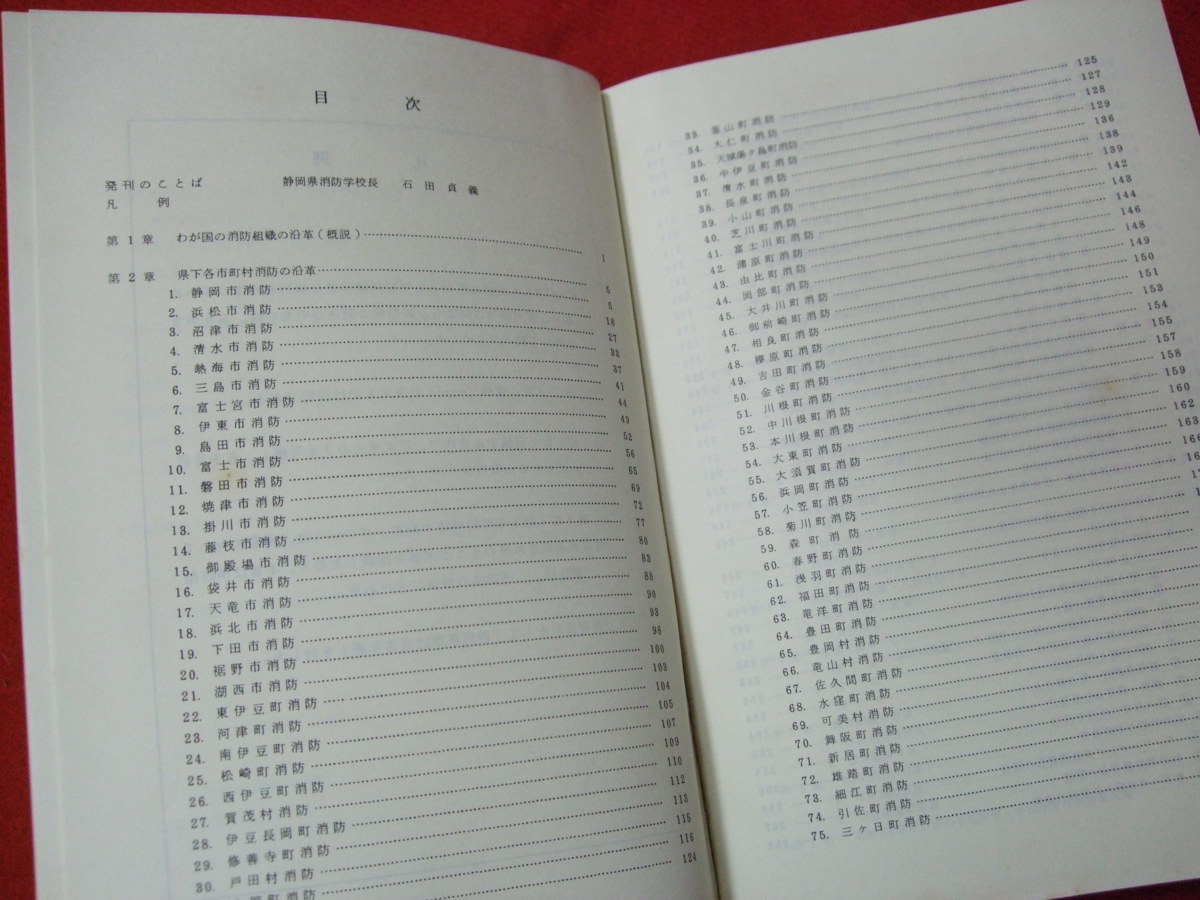 目次
発刊のことば 静岡県消防学校長 石田貞義
凡例
第1章 わが国の消防組織の沿革(概説)……1
第2章 県下各市町村消防の沿革……5
1. 静岡市消防……5
2. 浜松市消防……18
3. 沼津市消防……27
4. 清水市消防……33
5. 熱海市消防……37
6. 三島市消防……41
7. 富士宮市消防……44
8. 伊東市消防……49
9. 島田市消防……52
10. 富士市消防……56
11. 磐田市消防……65
12. 焼津市消防……69
13. 掛川市消防……72
14. 藤枝市消防……77
15. 御殿場市消防……80
16. 袋井市消防……83
17. 天竜市消防……88
18. 浜北市消防……90
19. 下田市消防……93
20. 裾野市消防……98
21. 湖西市消防……100
22. 東伊豆町消防……103
23. 河津町消防……104
24. 南伊豆町消防……105
25. 松崎町消防……107
26. 西伊豆町消防……109
27. 賀茂村消防……110
28. 伊豆長岡町消防……112
29. 修善寺町消防……113
30. 戸田村消防……115
町消防……116
124
33. 韮山町消防……125
34. 大仁町消防……127
35. 天城湯ヶ島町消防……128
36. 中伊豆町消防……129
37. 清水町消防……136
38. 長泉町消防……138
39. 小山町消防……139
40. 芝川町消防……142
41. 富士川町消防……143
42. 蒲原町消防……144
43. 由比町消防……146
44. 岡部町消防……148
45. 大井川町消防……149
46. 御前崎町消防……150
47. 相良町消防……151
48. 榛原町消防……153
49. 吉田町消防……154
50. 金谷町消防……155
51. 川根町消防……157
52. 中川根町消防……158
53. 本川根町消防……159
54. 大東町消防……160
55. 大須賀町消防……162
56. 浜岡町消防……163
57. 小笠町消防……16
58. 菊川町消防……1
59. 森町消防……1
60. 春野町消防……
61. 浅羽町消防……
62. 福田町消防……
63. 竜洋町消防……
64. 豊田町消防……
65. 豊岡村消防……
66. 竜山村消防……
67. 佐久間町消防……
68. 水窪町消防……
69. 可美村消防……
70. 舞阪町消防……
71. 新居町消防……
72. 雄踏町消防……
73. 細江町消防……
74. 引佐町消防……
75. 三ヶ日町消防……